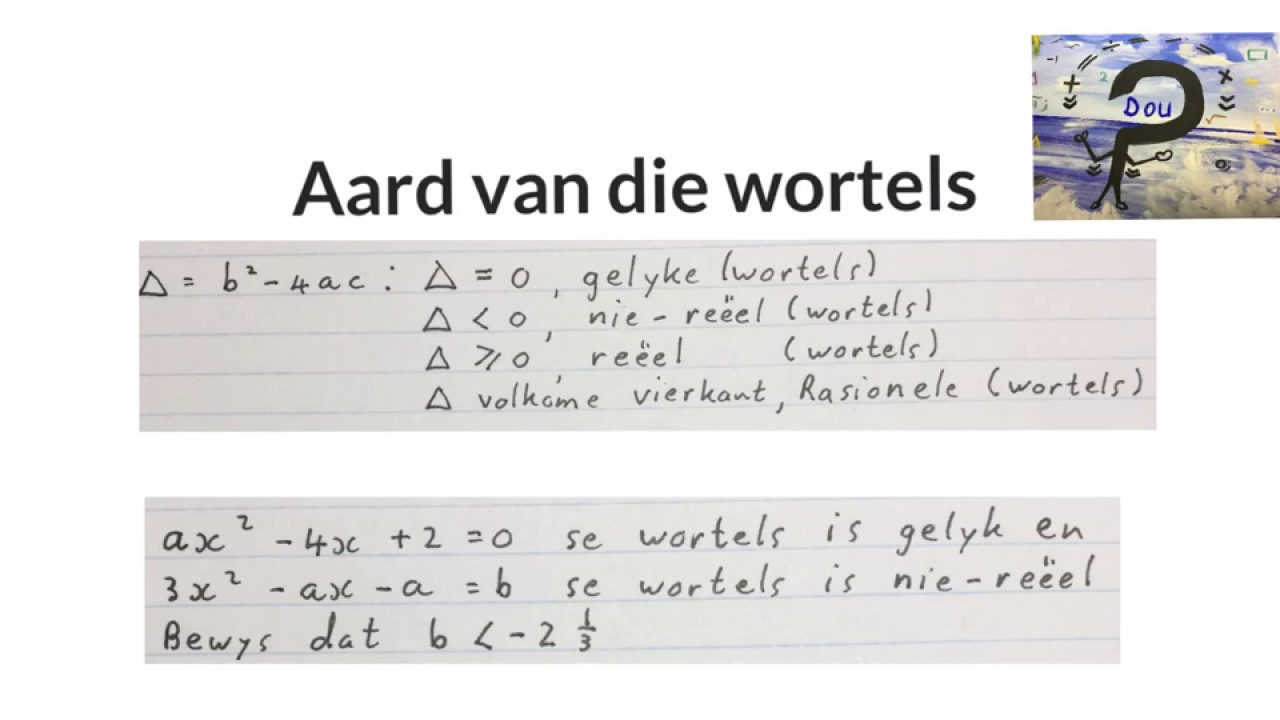 Dou
Aard van die wortels
Δ = b² - 4ac : Δ = 0, gelyke (wortels)
Δ < 0, nie-reëel (wortels)
Δ ⩾ 0, reëel (wortels)
Δ volkome vierkant, Rasionele (wortels)
ax² - 4x + 2 = 0 se wortels is gelyk en
3x² - ax - a = b se wortels is nie-reëel
Bewys dat b < -2 1/3